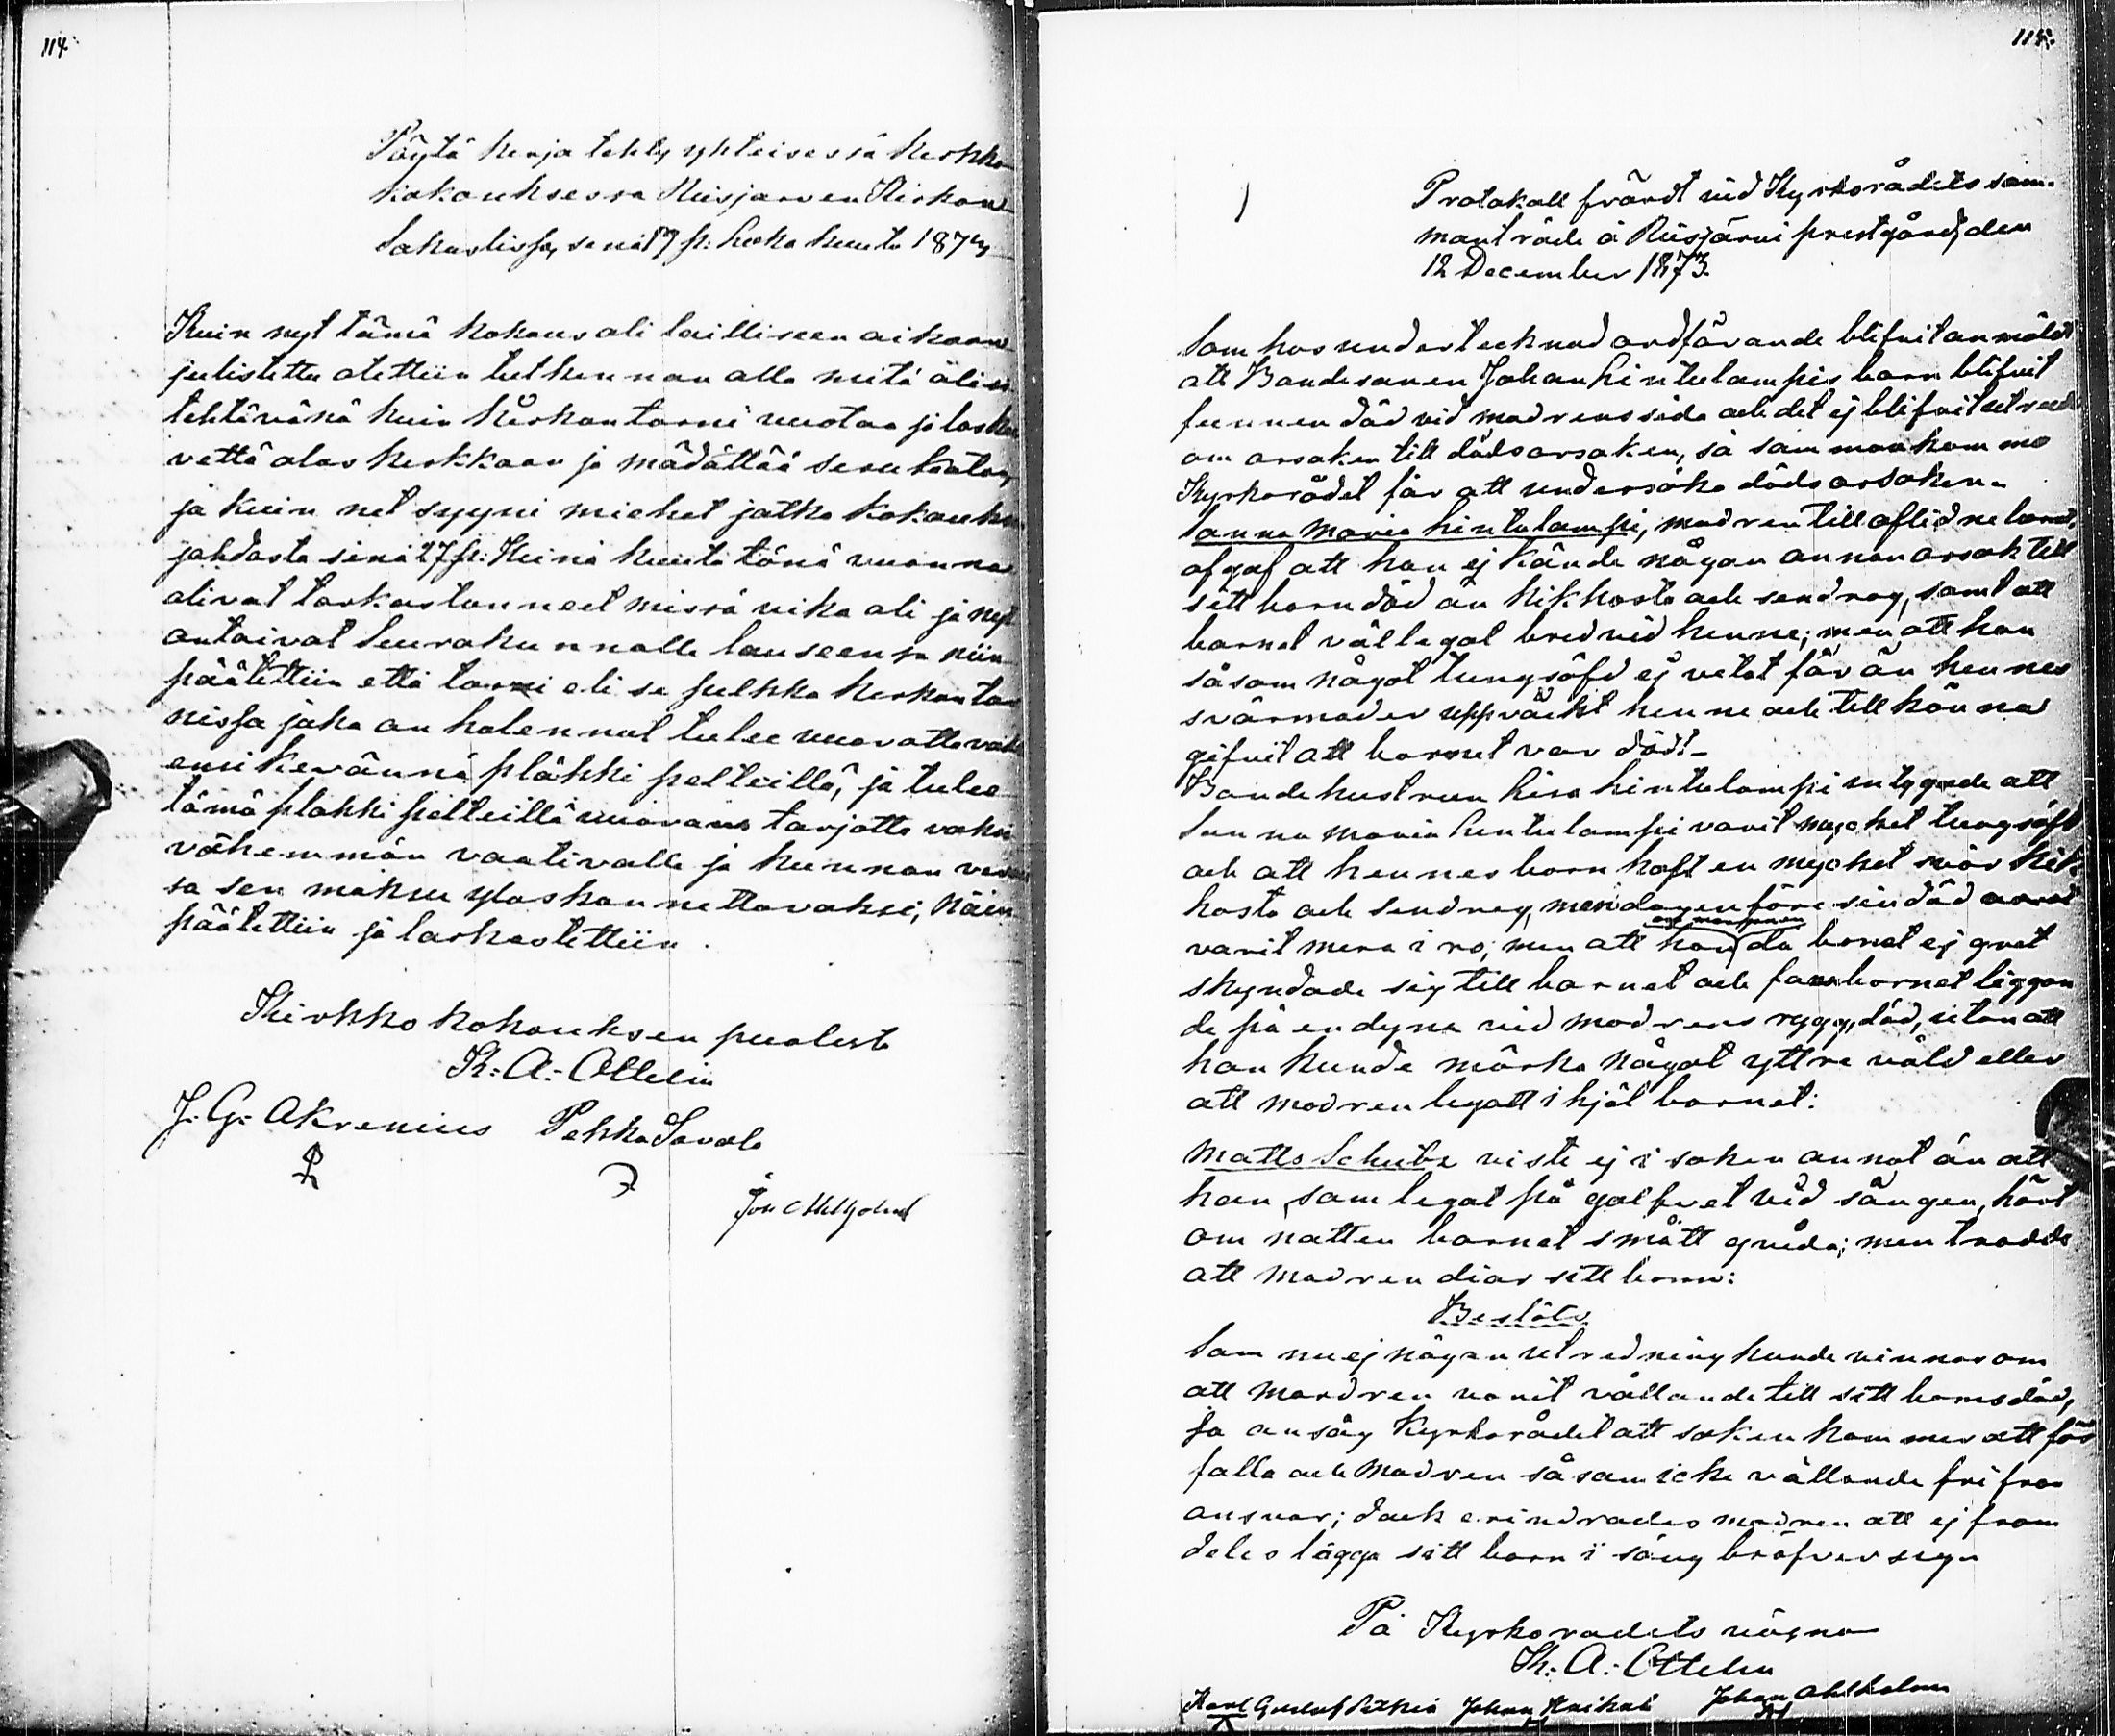 114.
Pöytä kerja tehty yhteisessä kirkko
kokouksessa Reisjärven Kirkon
Sakastissa, senä 17 p: loka kuuta 1874
Kuin nyt tämä kokous oli lailliseen aikaan
julistettu otettiin tutkinnan alla mitä olisi
tehtävänä kuin kirkon tarni vuotaa ja laskee
vettä alas kirkkaan ja mädättää
ja kuin net syyni miehet jotka kokouksen
johdosta senä 27 p: Heinä kuuta tänä vuonna
olivat tarkastanneet missä vika oli ja nyt
antaivat Seurakunnalle lauseensa niin
päätettiin että tarni eli se pulkka kirkon tar
nissa joka on halennut tulee vuorattavaksi
ensi kevännä pläkki pelteillä, ja tulee
tämä plakki pelteillä vuoraus tarjotta vaksi
vähemmän vaativalle ja kunnan
sa sen maksu ylös kannettavaksi, näin
päätettiin ja tarkastettiin.
Kirkko kokouksen puolest
K: A: Ottelin
J: G: Akrenius Pekka Savola
115.
Protokoll frördt vid Kyrkorådets sam-
manträde å Reisjärvi prestgård, den
12 December 1873.
Som hos undertecknad ordförande blifvit anmäldt
att Bondesonen Johan Hintulampis barn blifvit
funnen död vid modrens sida och det ej blifvit utredt
om orsaken till dödsorsaken, så sammankom mo
Kyrkorådet för att undersöka dödsorsaken.
Sanna Maria Hintulampi, modren till aflidne barnet,
afgaf att hon ej kände någon annan orsak till
sitt barn död än kikhosta och sendrag, samt att
barnet väl legat bred vid henne; men att hon
såsom något tungsöfd ej vetat för än hennes
svärmoder uppväckt henne och till känna
gifvit att barnet var död!-
Bondehustrun Lisa Hintulampi intygade att
Sanna Maria Hintulampi varit mycket tungsöft
och att hennes barn haft en mycket svår kik
hosta och sendrag, men dagen före sin död
om morgonen
varit mera i ro; men att hon da barnet ej gret
skyndade sig till barnet och fann barnet liggan
de på en dyna vid modrens rygg, död, utan att
hon kunde märka något yttre våld eller
att modren legatt i hjäl barnet:
Matts viste ej i saken annat än att
han, som legat på golfvet vid sängen, hört
om natten barnet smått gnida; men trodde
att modren diar sitt barn:
Beslöts
Som nu ej någon utredning kunde vinnas om
att mordren varit vållande till sitt barns död,
så ansåg Kyrkorådet att saken kommer att för
falla och Modren såsom icke vållande fri från
ansvar; dock erindrades modren att ej fram
deles lägga sitt barn i säng bräfver sig.
På Kyrkorådets vägnar
K: A: Ottelin
Karl Gustaf Johan Johan Ahlholm